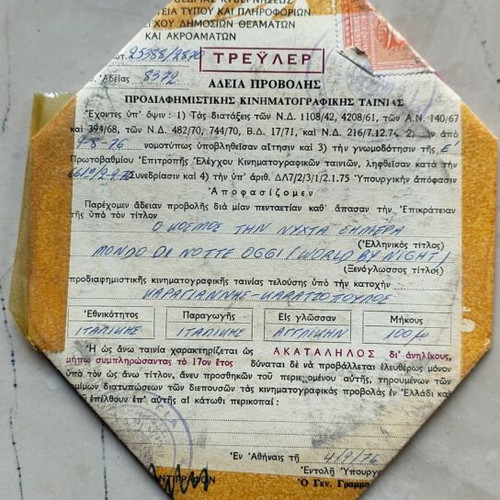 ΤΕΙΑ ΤΥΠΟΥ ΚΑΙ ΠΛΗΡΟΦΟΡΙΩΝ
ΓΧΟΥ ΔΗΜΟΣΙΩΝ ΘΕΑΜΑΤΩΝ
ΚΑΙ ΑΚΡΟΑΜΑΤΩΝ
ΤΡΕΫΛΕΡ
Ἀδείας 8372
ΑΔΕΙΑ ΠΡΟΒΟΛΗΣ
ΠΡΟΔΙΑΦΗΜΙΣΤΙΚΗΣ ΚΙΝΗΜΑΤΟΓΡΑΦΙΚΗΣ ΤΑΙΝΙΑΣ
Ἔχοντες ὑπ' ὄψιν: 1) Τὰς διατάξεις τῶν Ν.Δ. 1108/42, 4208/61, τῶν Α.Ν. 140/67
καὶ 394/68, τῶν Ν.Δ. 482/70, 744/70, Β.Δ. 17/71, καὶ Ν.Δ. 216/7.12.74 2) Τὴν ἀπὸ
9-8-76 νομοτύπως ὑποβληθεῖσαν αἴτησιν καὶ 3) τὴν γνωμοδότησιν τῆς Ε'
Πρωτοβαθμίου Ἐπιτροπῆς Ἐλέγχου Κινηματογραφικῶν ταινιῶν, ληφθεῖσαν κατὰ τὴν
Συνεδρίασιν καὶ 4) τὴν ὑπ' ἀριθ. ΔΛ7/2/3/1/2.1.75 Ὑπουργικὴν ἀπόφασιν
Ἀποφασίζομεν
Παρέχομεν ἄδειαν προβολῆς διὰ μίαν πενταετίαν καθ' ἅπασαν τὴν Ἐπικράτειαν
τῆς ὑπὸ τὸν τίτλον
Ο ΚΟΣΜΟΣ ΤΗΝ ΝΥΧΤΑ ΣΗΜΕΡΑ
(Ἑλληνικὸς τίτλος)
MONDO DI NOTTE OGGI (WORLD BY NIGHT)
(Ξενόγλωσσος τίτλος)
προδιαφημιστικῆς κινηματογραφικῆς ταινίας τελούσης ὑπὸ τὴν κατοχὴν
ΚΑΡΑΓΙΑΝΝΗΣ-ΚΑΡΑΤΖΟΠΟΥΛΟΣ
Ἐθνικότητος Παραγωγῆς Εἰς γλῶσσαν Μήκους
ΙΤΑΛΙΚΗΣ ΙΤΑΛΙΚΗΣ ΑΓΓΛΙΚΗΝ 100μ
Ἡ ὡς ἄνω ταινία χαρακτηρίζεται ὡς ΑΚΑΤΑΛΗΛΟΣ δι' ἀνηλίκους,
μήπω συμπληρώσαντας τὸ 17ον ἔτος δύναται δὲ νὰ προβάλλεται ἐλευθέρως μόνον
ὑπὸ τὸν ὡς ἄνω τίτλον, ἄνευ προσθηκῶν τοῦ περιεχομένου αὐτῆς, τηρουμένων τῶν
διατυπώσεων τῶν διεπουσῶν τὰς κινηματογραφικὰς προβολὰς ἐν Ἑλλάδι καὶ
ἐπέλθουν ἐπ' αὐτῆς αἱ κάτωθι περικοπαί:
Ἐν Ἀθήναις τῇ 4/9/76
Ἐντολῇ Ὑπουργ
Ὁ Γεν. Γραμμα